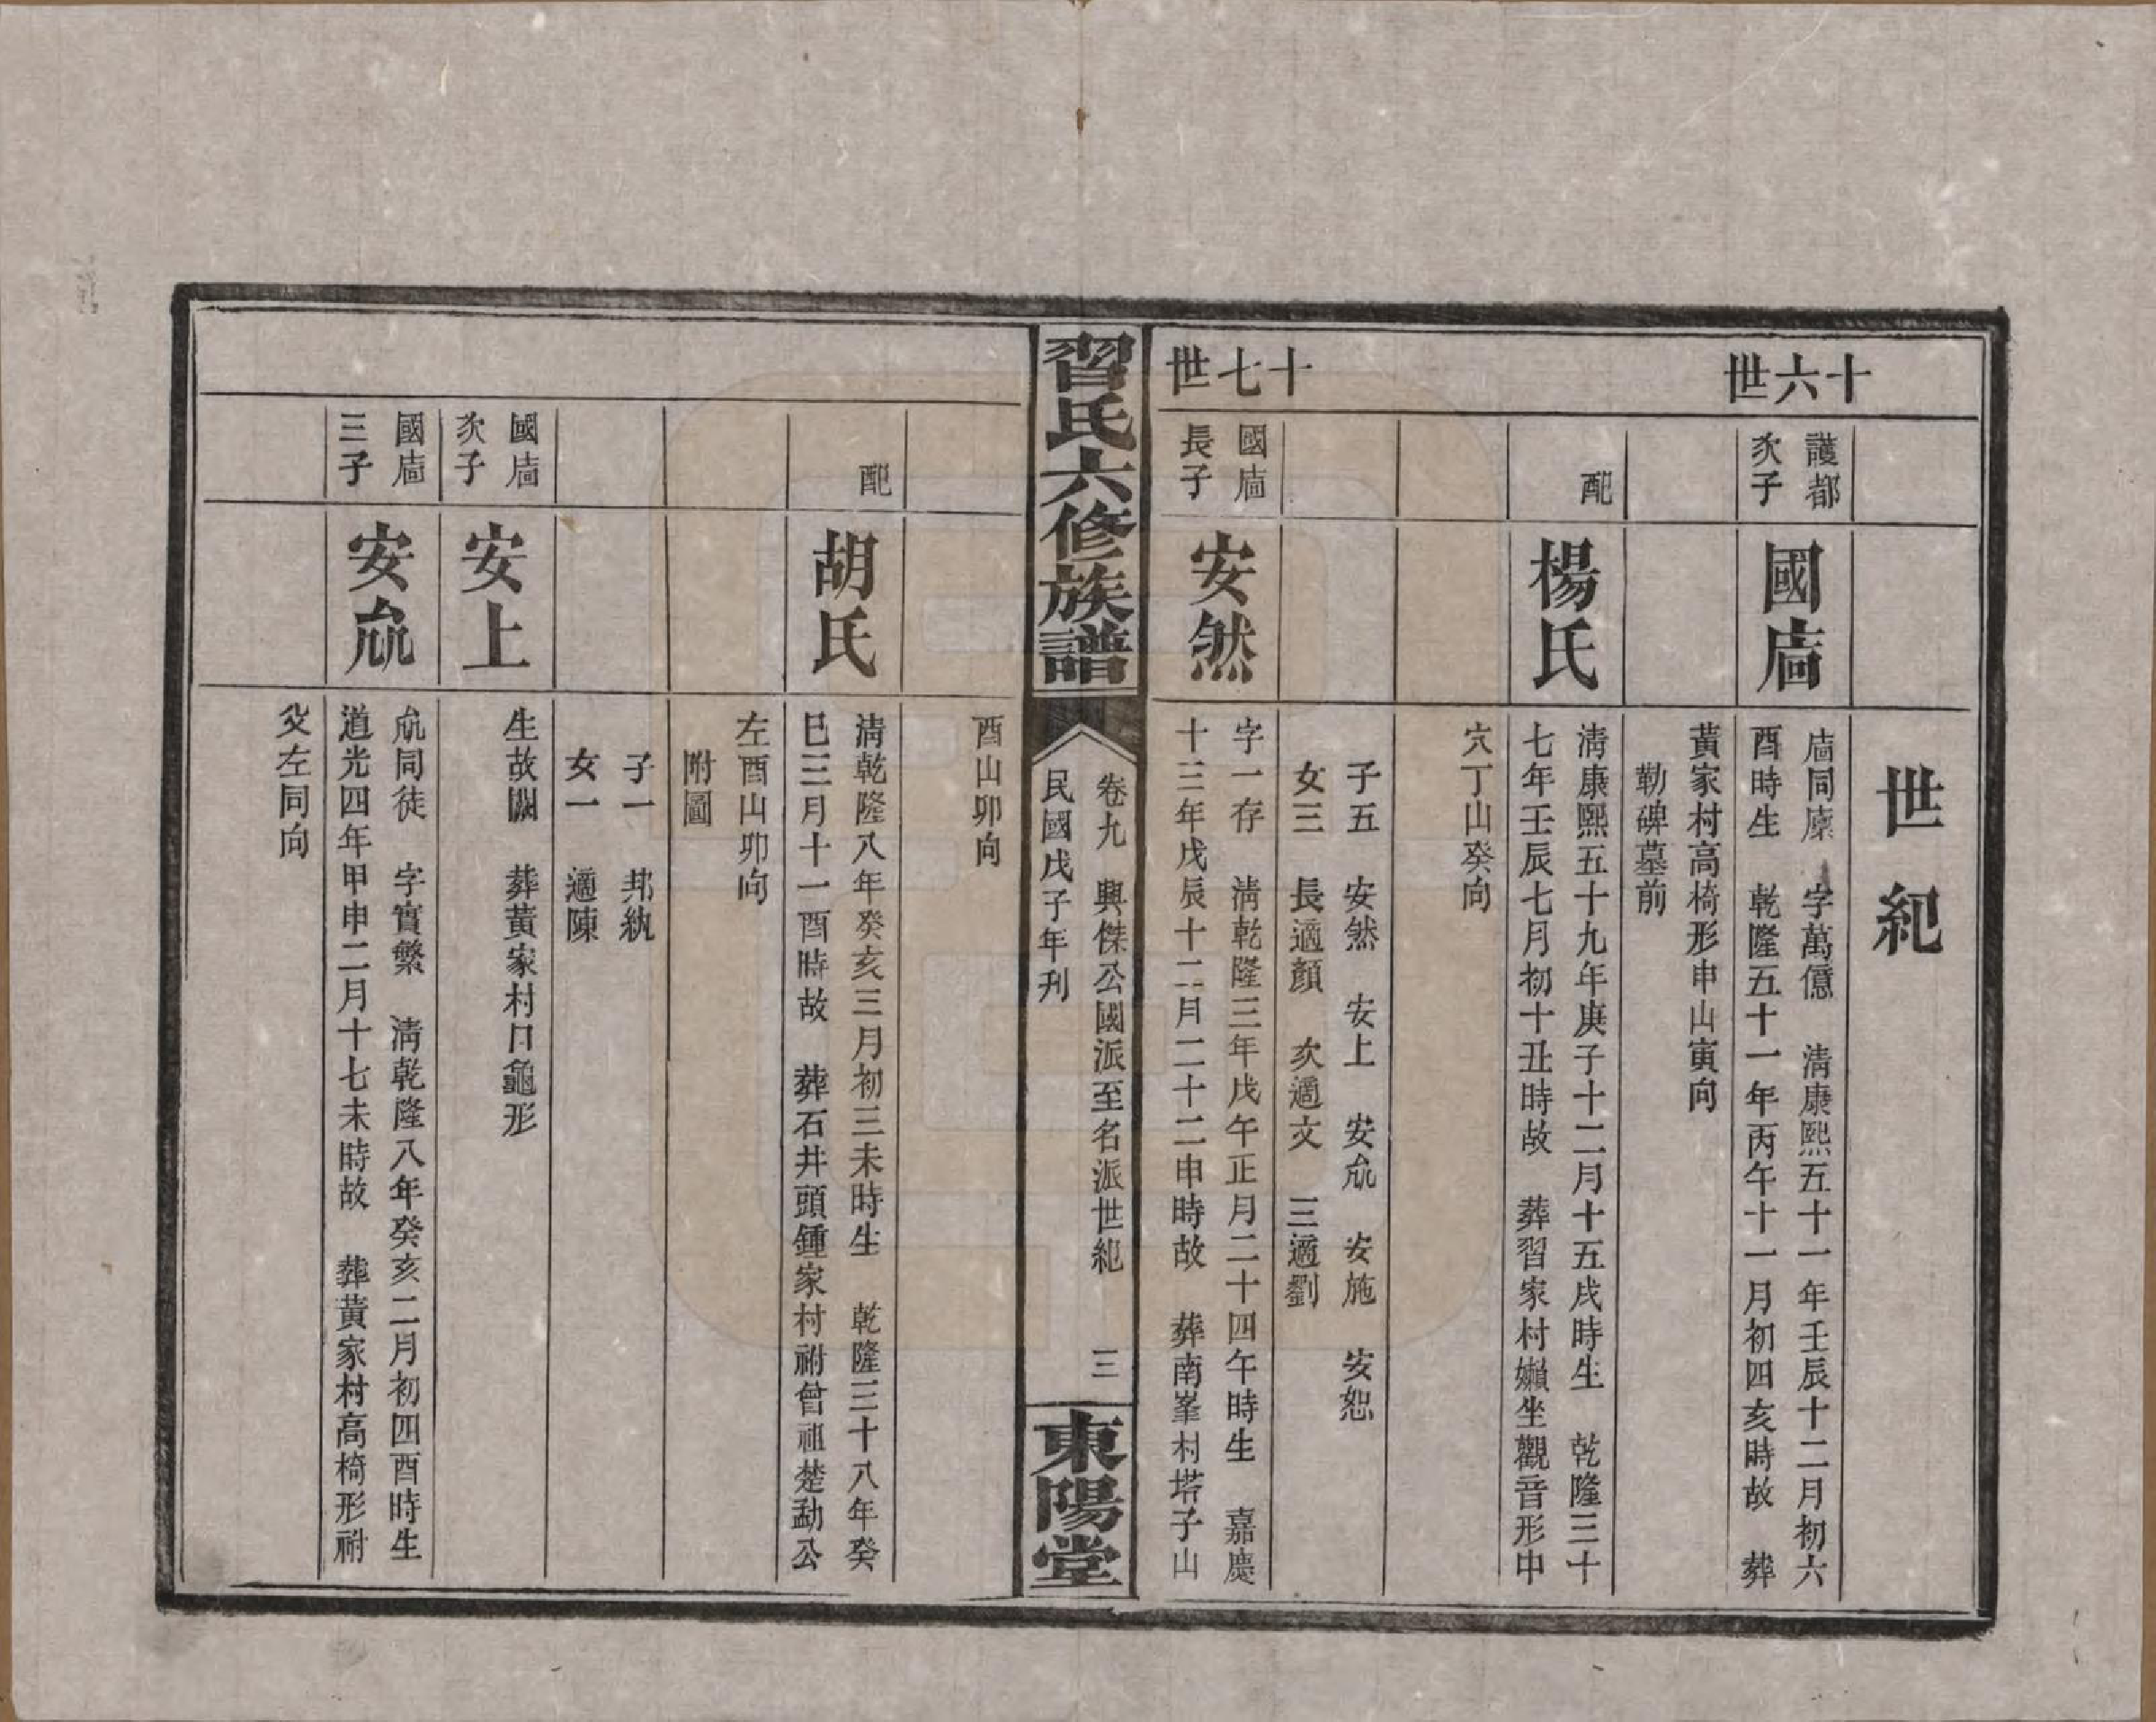 世紀
十六世
護都
次子
國庿
庿同廟 字萬億 清康熙五十一年壬辰十二月初六
酉時生 乾隆五十一年丙午十一月初四亥時故 葬
黃家村高椅形申山寅向
勒碑墓前
配
楊氏
清康熙五十九年庚子十二月十五戌時生 乾隆三十
七年壬辰七月初十丑時故 葬習家村嬾坐觀音形中
穴丁山癸向
子五 安然 安上 安㐬 安施 安恕
女三 長適顏 次適文 三適劉
十七世
國庿
長子
安然
字一存 清乾隆三年戊午正月二十四午時生 嘉慶
十三年戊辰十二月二十二申時故 葬南峯村塔子山
習氏六修族譜
卷九 興傑公國派至名派世紀 三
民國戊子年刊
東陽堂
酉山卯向
配
胡氏
清乾隆八年癸亥三月初三未時生 乾隆三十八年癸
巳三月十一酉時故 葬石井頭鍾家村祔曾祖楚勐公
左酉山卯向
附圖
子一 邦紈
女一 適陳
國庿
次子
安上
生故闕 葬黃家村日龜形
國庿
三子
安㐬
㐬同徒 字實繁 清乾隆八年癸亥二月初四酉時生
道光四年甲申二月十七未時故 葬黃家村高椅形祔
父左同向